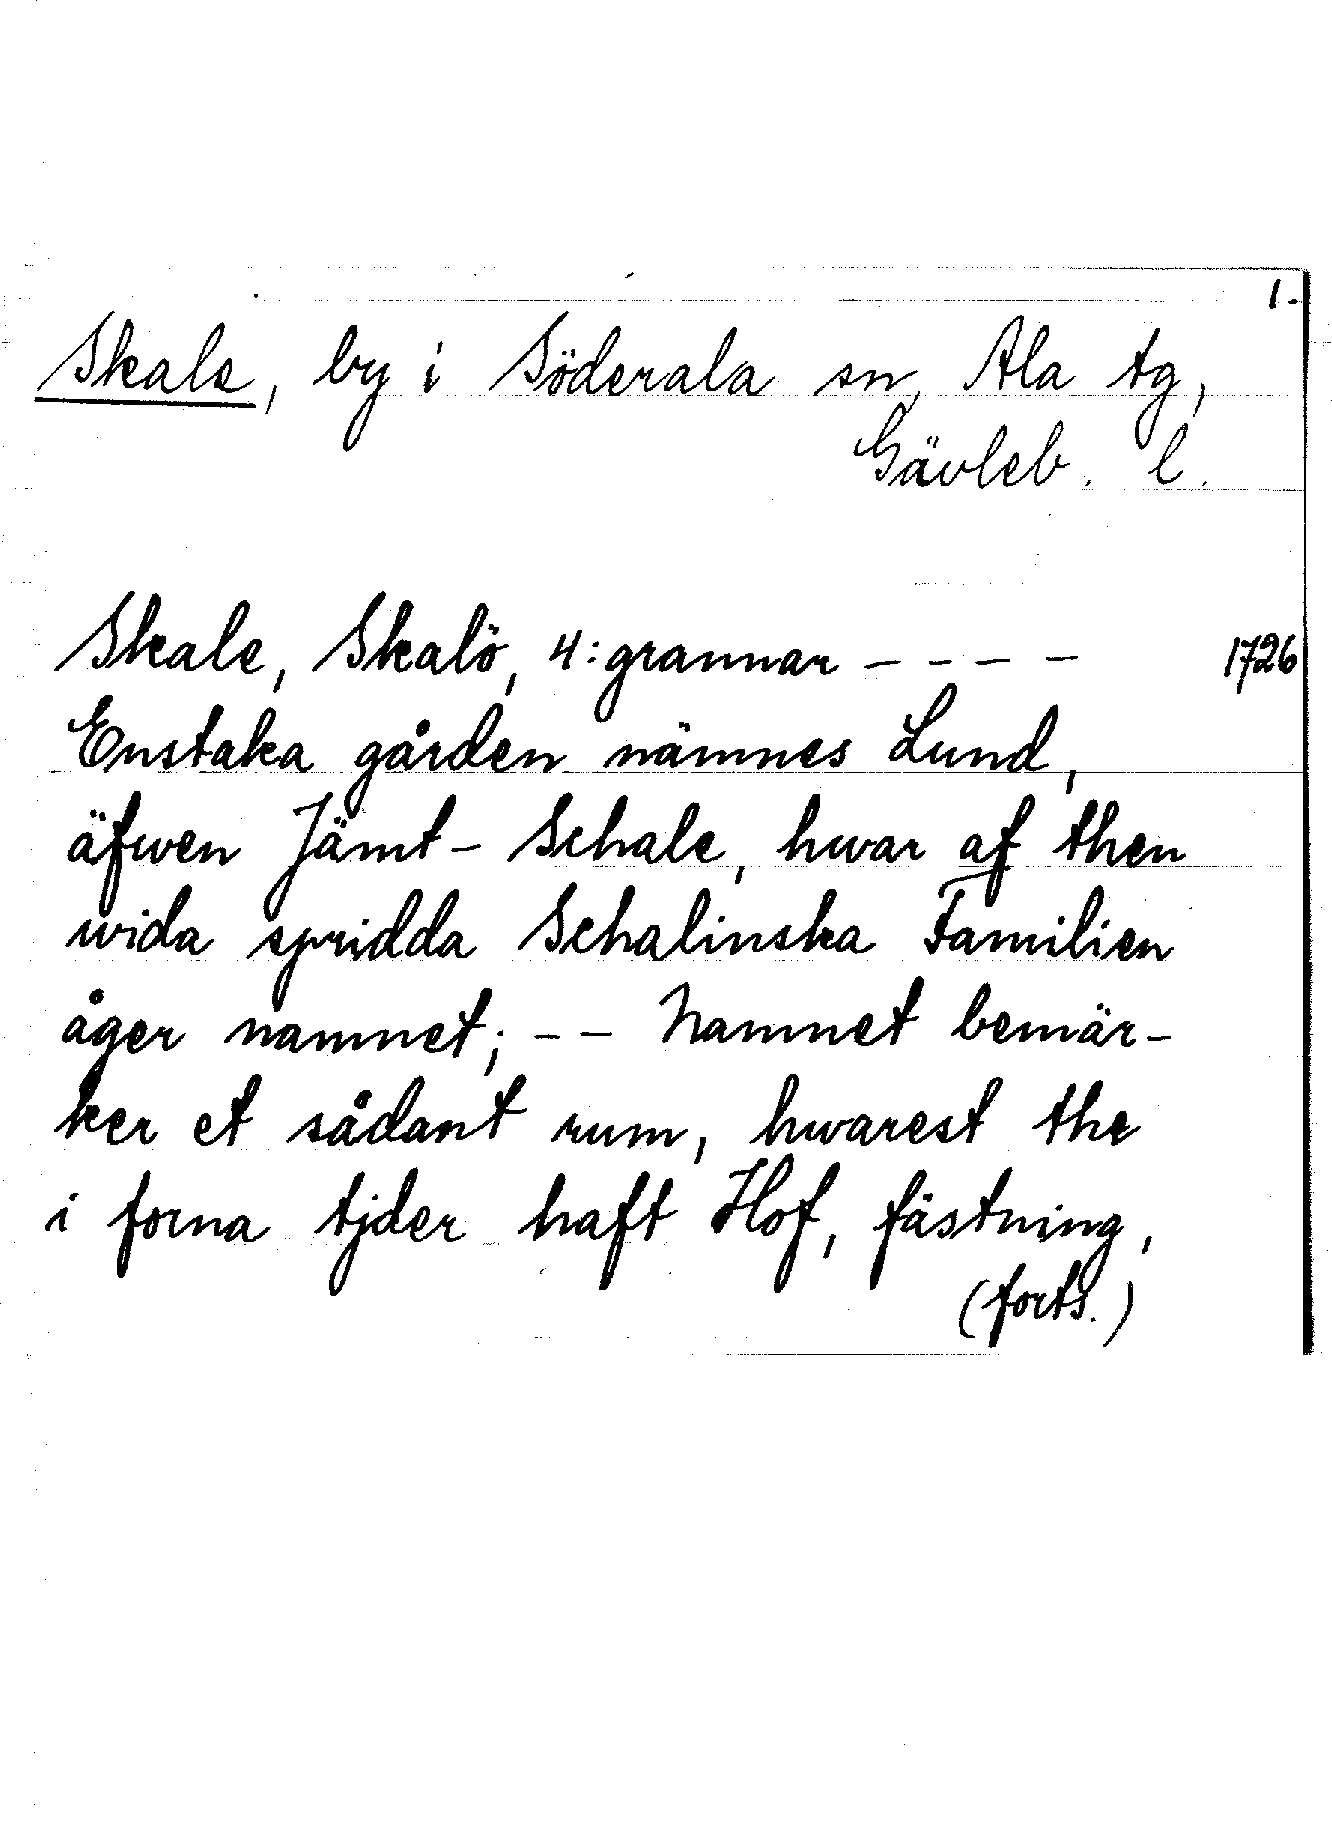 1.
Skale, by i Söderala sn, Ala tg,
Gävleb. l.
Skale, Skalö, 4:grannar - - - - 1726
Enstaka gården nämnes Lund,
äfwen Jämt- Schale, hwar af then
wida spridda Schalinska Familien
åger namnet; - - Namnet bemär-
ker et sådant rum, hwarest the
i forna tjder haft Hof, fästning,
(forts.)